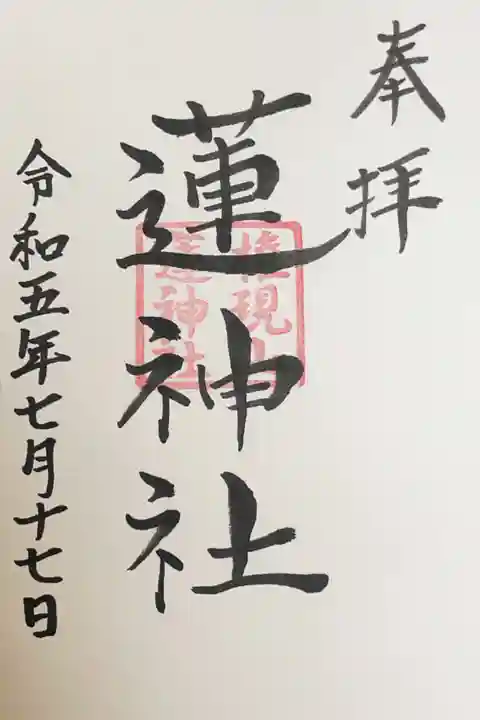 奉拝
蓮神社
権現山
蓮神社
令和五年七月十七日